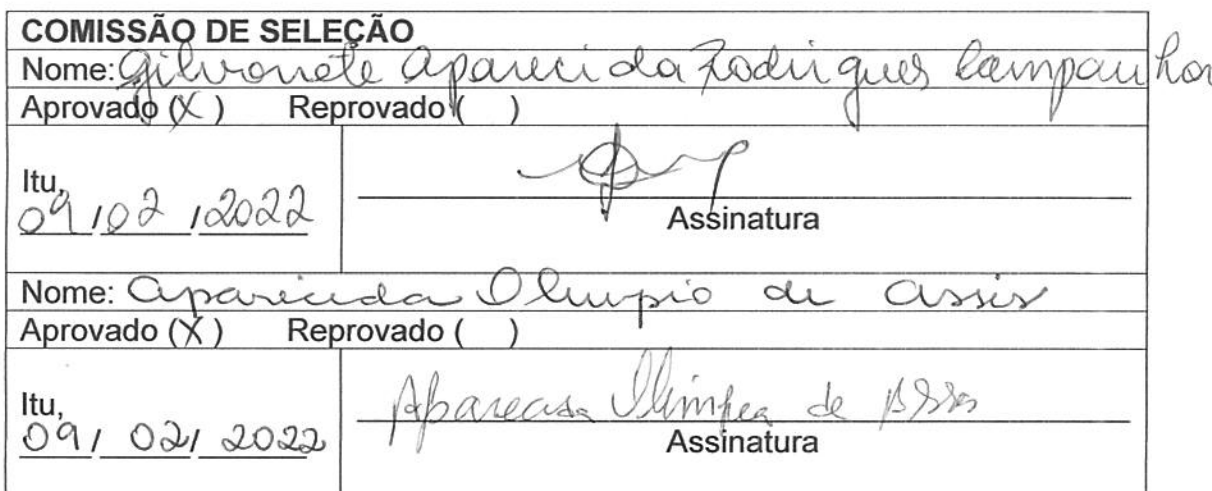 COMISSÃO DE SELEÇÃO
Nome: Gilvonete Aparecida Rodrigues Campanhor
Aprovado (X) Reprovado ( )
Itu,
09/02/2022
Assinatura
Nome: Aparecida Olimpio de Assis
Aprovado (X) Reprovado ( )
Itu,
09/02/2022
Aparecida Olimpia de Assis
Assinatura